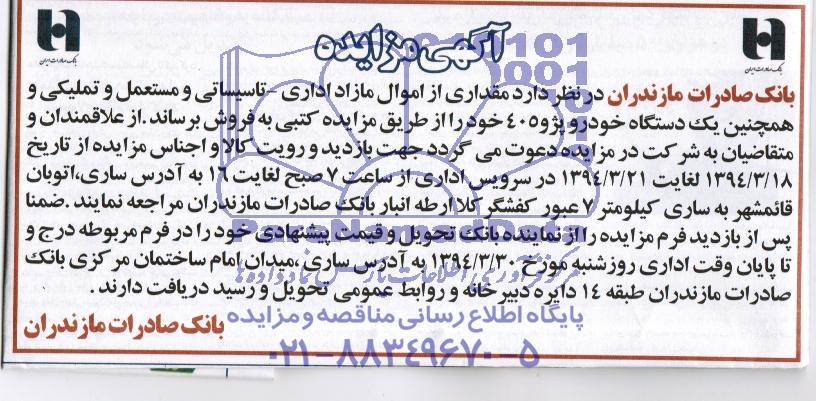 آگهی مزایده
بانک صادرات ایران
بانک صادرات ایران
بانک صادرات مازندران در نظر دارد مقداری از اموال مازاد اداری -تاسیساتی و مستعمل و تملیکی و
همچنین یک دستگاه خودرو پژو ۴۰۵ خود را از طریق مزایده کتبی به فروش برساند .از علاقمندان و
متقاضیان به شرکت در مزایده دعوت می گردد جهت بازدید و رویت کالا و اجناس مزایده از تاریخ
۱۳۹٤/۳/۱۸ لغایت ۱۳۹٤/۳/۲۱ در سرویس اداری از ساعت ۷ صبح لغایت ۱۶ به آدرس ساری،اتوبان
قائمشهر به ساری کیلومتر ۷ عبور کفشگر کلا ارطه انبار بانک صادرات مازندران مراجعه نمایند .ضمنا
پس از بازدید فرم مزایده را از نماینده بانک تحویل و قیمت پیشنهادی خود را در فرم مربوطه درج و
تا پایان وقت اداری روز شنبه مورخ ۱۳۹٤/۳/۳۰ به آدرس ساری ،میدان امام ساختمان مرکزی بانک
صادرات مازندران طبقه ۱۴ دایره دبیرخانه و روابط عمومی تحویل و رسید دریافت دارند .
بانک صادرات مازندران
پایگاه اطلاع رسانی مناقصه و مزایده
۰۲۱-۸۸۳۴۹۶۷۰-۵